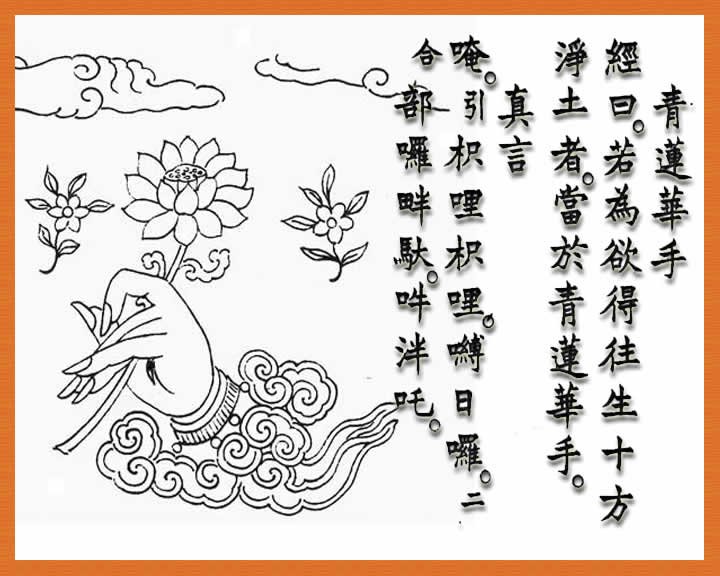 青蓮華手
經曰。若為欲得往生十方
淨土者。當於青蓮華手。
真言
唵。引枳哩枳哩。嚩日囉。二
合部囉畔馱。吽泮吒。